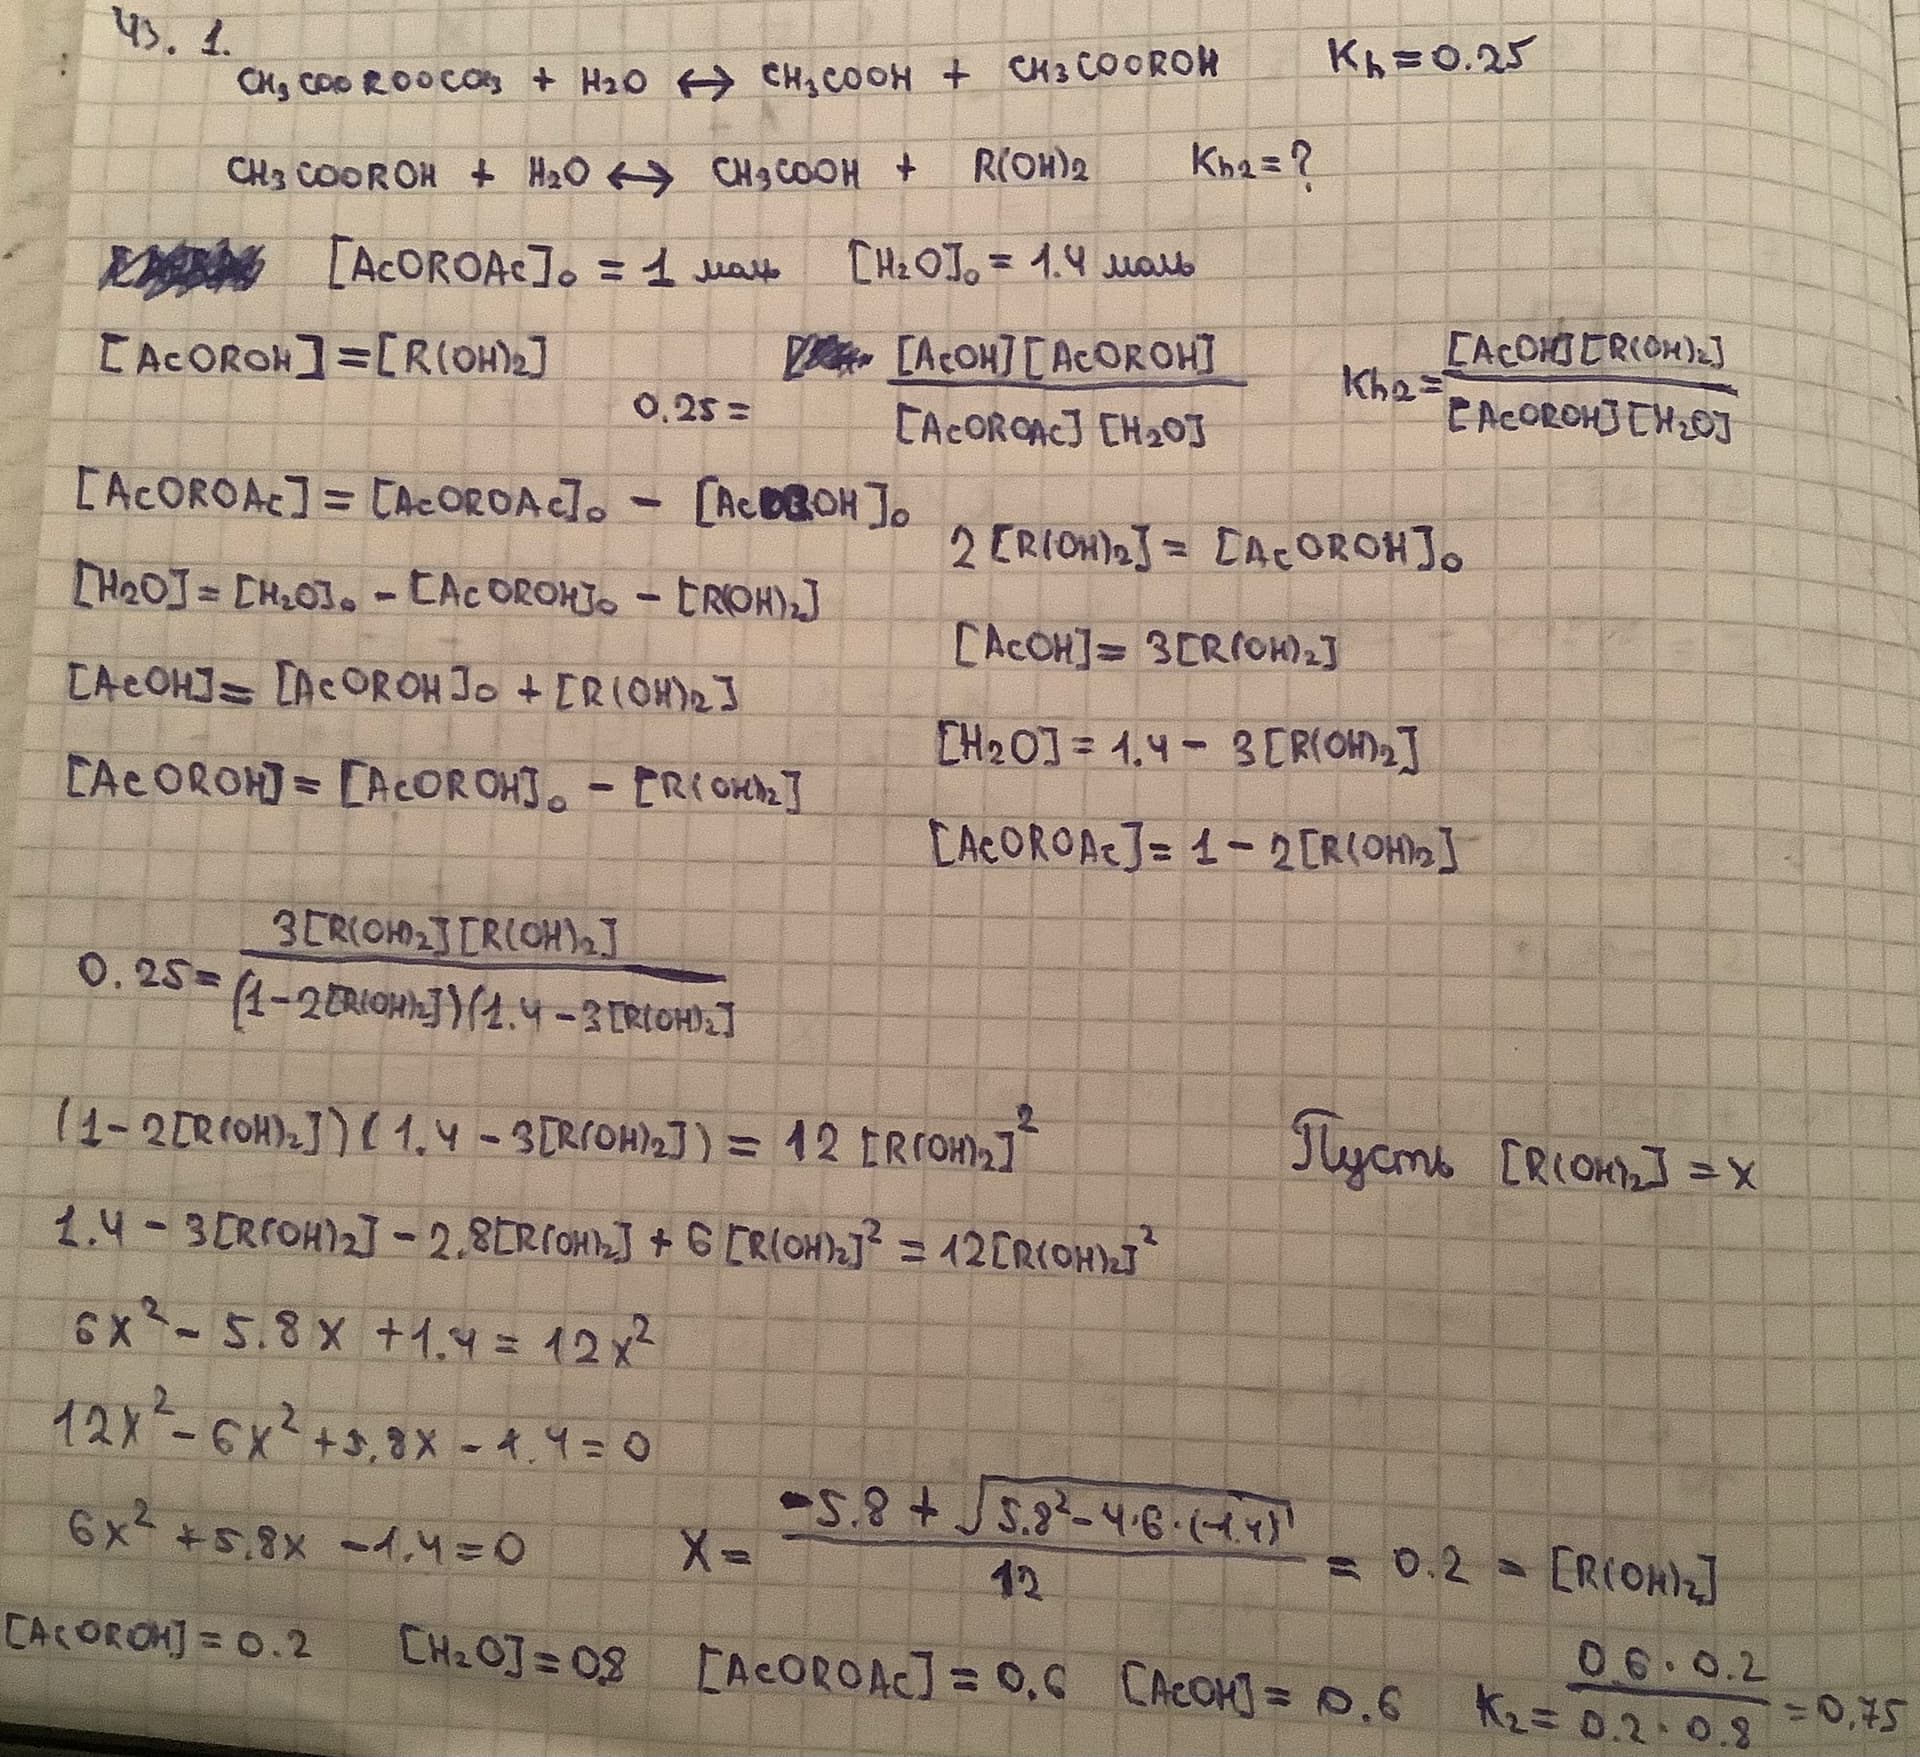 Ч3. 1.
CH₃COOROOCCH₃ + H₂O ↔ CH₃COOH + CH₃COOROH Kh = 0.25
CH₃COOROH + H₂O ↔ CH₃COOH + R(OH)₂ Kh₂ = ?
[AcOROAc]₀ = 1 моль [H₂O]₀ = 1.4 моль
[AcOROH] = [R(OH)₂]
0.25 = [AcOH][AcOROH] / [AcOROAc][H₂O]
Kh₂ = [AcOH][R(OH)₂] / [AcOROH][H₂O]
[AcOROAc] = [AcOROAc]₀ − [AcOROH]₀
[H₂O] = [H₂O]₀ − [AcOROH]₀ − [R(OH)₂]
[AcOH] = [AcOROH]₀ + [R(OH)₂]
[AcOROH] = [AcOROH]₀ − [R(OH)₂]
2[R(OH)₂] = [AcOROH]₀
[AcOH] = 3[R(OH)₂]
[H₂O] = 1.4 − 3[R(OH)₂]
[AcOROAc] = 1 − 2[R(OH)₂]
0.25 = 3[R(OH)₂][R(OH)₂] / (1−2[R(OH)₂])(1.4−3[R(OH)₂]
(1−2[R(OH)₂])(1.4−3[R(OH)₂]) = 12[R(OH)₂]²
Пусть [R(OH)₂] = x
1.4 − 3[R(OH)₂] − 2.8[R(OH)₂] + 6[R(OH)₂]² = 12[R(OH)₂]²
6x² − 5.8x + 1.4 = 12x²
12x² − 6x² + 5.8x − 1.4 = 0
6x² + 5.8x − 1.4 = 0 x = −5.8 + √(5.8² − 4·6·(−1.4)) / 12 = 0.2 = [R(OH)₂]
[AcOROH] = 0.2 [H₂O] = 0.8 [AcOROAc] = 0.6 [AcOH] = 0.6 K₂ = 0.6·0.2 / 0.2·0.8 = 0.75